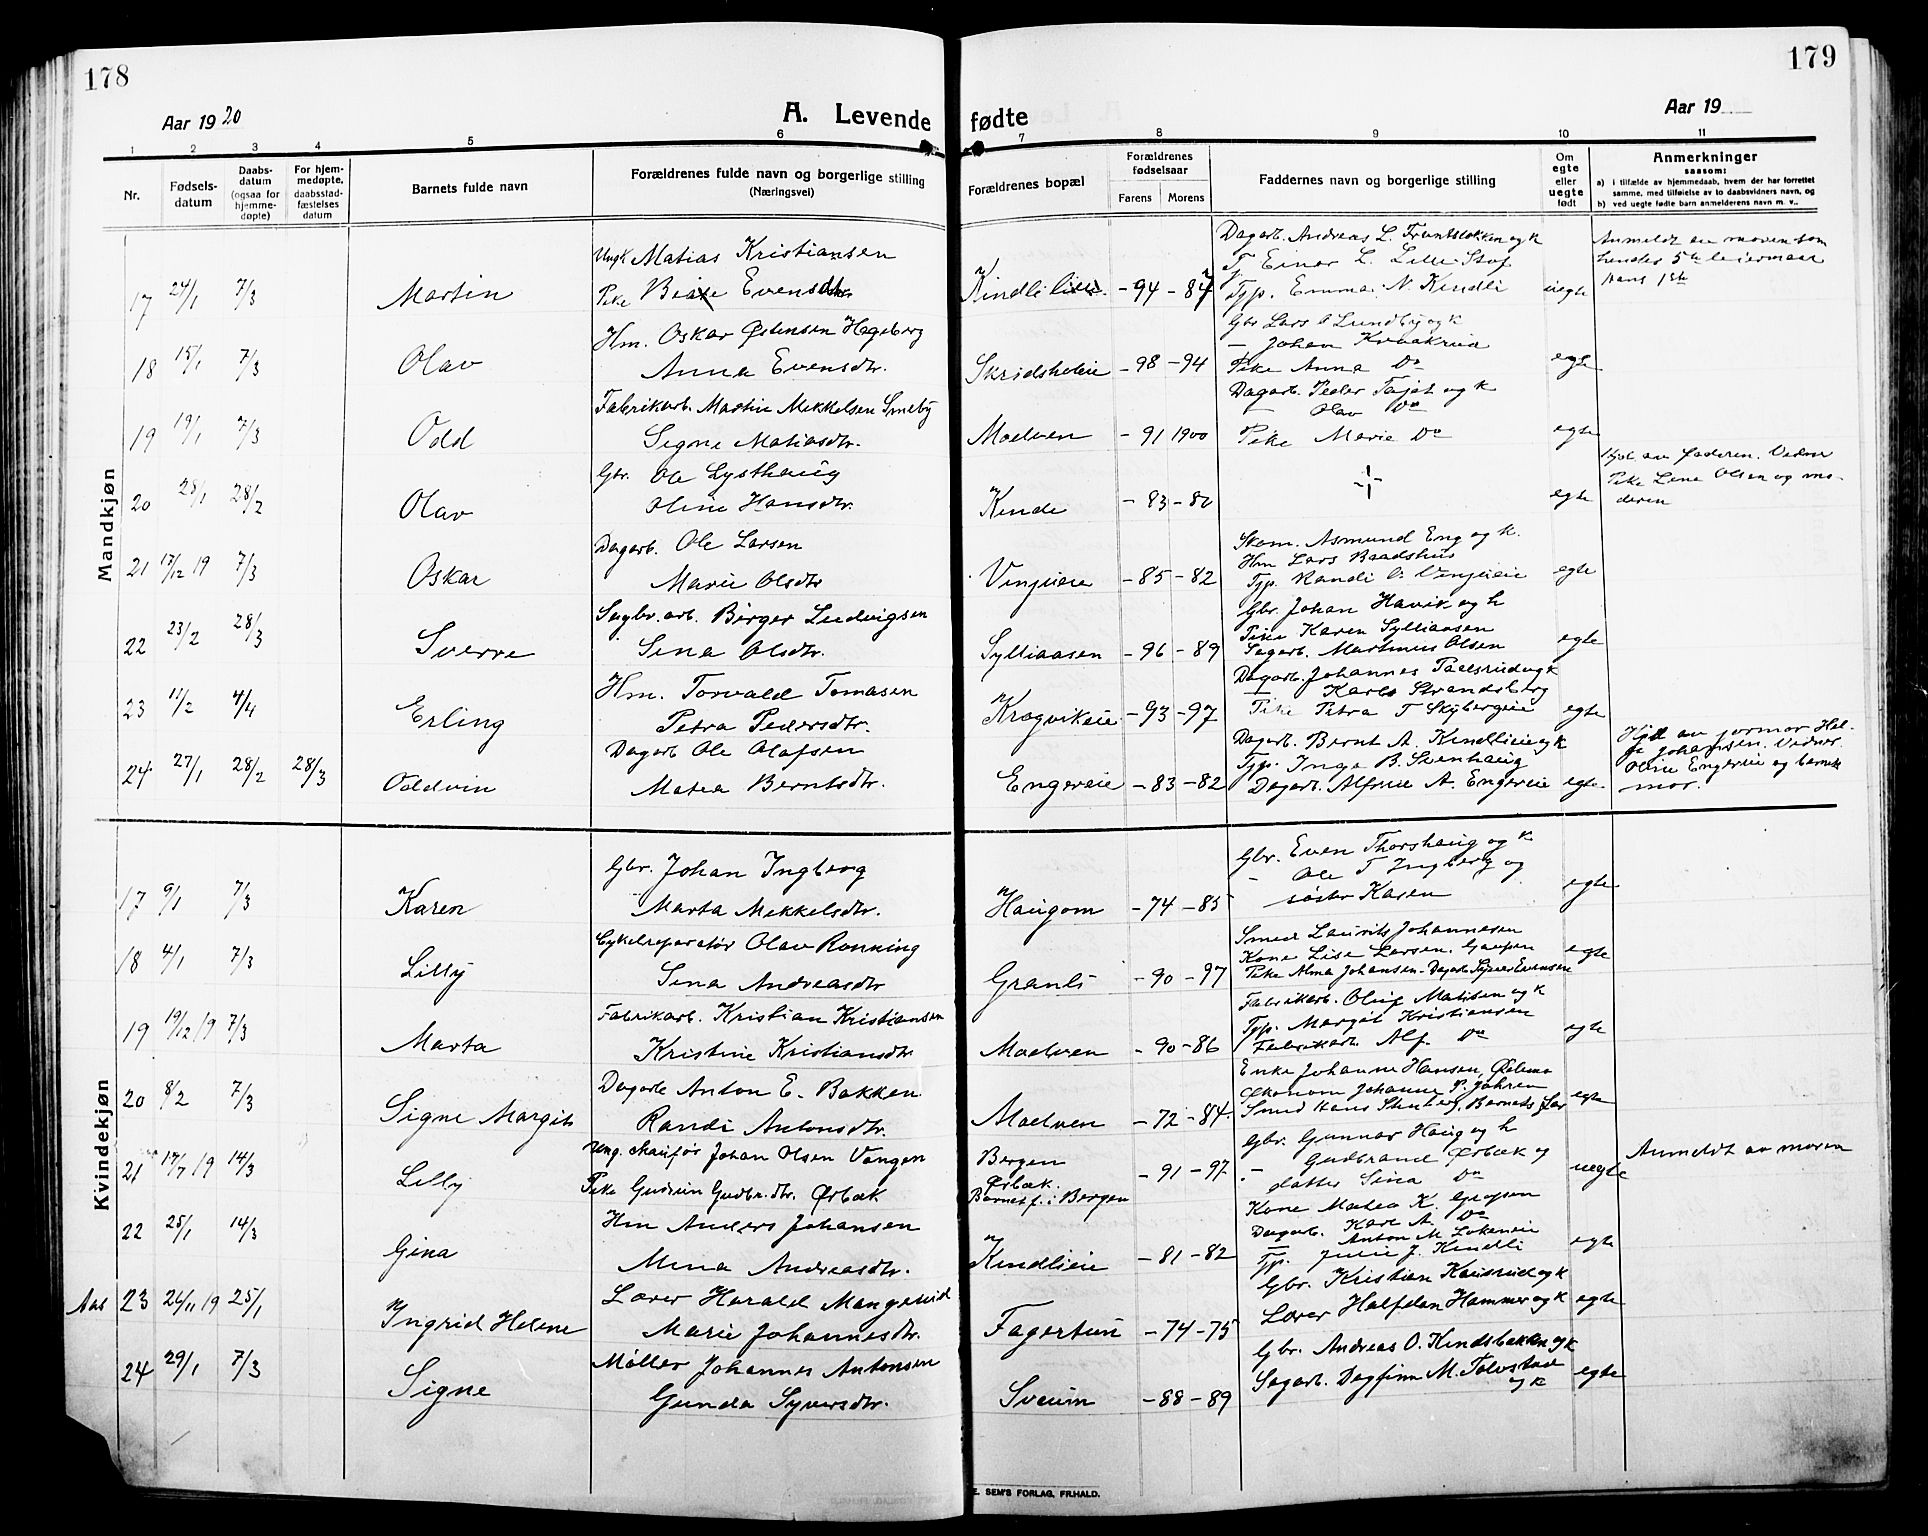 178
179
Aar 1920
A. Levende fødte
Aar 19
1 2 3 4 5 6 7 8 9 10 11
Nr.
Fødsels-
datum
Daabs-
datum
(ogsaa for
hjemme-
døpte)
For hjem-
medøpte,
daabsstad-
fæstelses
datum
Barnets fulde navn
Forældrenes fulde navn og borgerlige stilling
(Næringsvei)
Forældrenes bopæl
Forældrenes
fødselsaar
Farens Morens
Faddernes navn og borgerlige stilling
Om
egte
eller
uegte
født
Anmerkninger
saasom:
a) i tilfælde av hjemmedaab, hvem der har forrettet
samme, med tilføielse av to daabsvidners navn, og
b) ved uegte fødte barn anmelderens navn m. v..
Mandkjøn
Ungk Matias Kristiansen
Dagarb. Andreas L. og k
Anmeldt av moren som
T. Einar L.
hendes 5te leiermaal
17 24/1 7/3 Martin Pike Evensdtr. Kindli -94 -87 Typ. Emma N. Kindli uegte
Hans 1ste
Hm. Oskar Østensen Hageberg
Gbr Lars O Lundby og k
- Johan Kvaakrud
18 15/1 7/3 Olav Anna Evensdtr. -98 -94 Pike Anna Do egte
Fabrikarb. Martin Mikkelsen Smeby
Dagarb. Peder og k
- Olav Do
19 19/1 7/3 Odd Signe Matiasdtr. Moelven -91 1900 Pike Marie Do egte
Gbr. Ole Lysthaug
Hjd. av faderen. Vidner
Pike Lene Olsen og mo-
20 28/2 Olav Oline Hansdtr. Kinde -83 -80 egte
deren
Dagarb. Ole Larsen
Skom. Asmund Eng og k.
Hm Lars Baadshus
21 17/12 19 7/3 Oskar Marie Olsdtr -85 -82 Typ. Randi O. egte
Sagbr. arb. Birger Ludvigsen
Gbr. Johan Havik og k
Pike Karen Sylliaasen
22 23/2 28/3 Sverre Sina Olsdtr. Sylliaasen -96 -89 Sagarb. Martinus Olsen egte
Hm. Torvald Tomasen
Dagarb. Johannes og k
- Karls Strandsberg
23 11/2 4/4 Erling Petra Pedersdtr. Krogvikeie -93 -97 Pike Petra T Skybergeie egte
Dagarb Ole Olafsen
Dagarb. Bernt A. Kindlieie og k
Hjd av jormor Hel-
Typ. Inga B. Stenhaug
ga Johansen. Vidner
24 27/1 28/2 28/3 Oddvin Matea Berntsdtr. Engereie -83 -82 Dagarb. A. Engereie egte
Oline Engereie og barnets
mor.
Kvindekjøn
Gbr. Johan Ingberg
Gbr. Even Thorshaug og k
- Ole T Ingberg og
17 9/1 7/3 Karen Marta Mekkelsdtr. Haugom -74 -85 søster Karen egte
Cykelreparatør Olav Rønning
Smed Laurits Johannesen
Kone Lise Larsen, Gaupen
18 4/1 7/3 Lilly Sina Andreasdtr Granli -90 -97 Pike Alma Johansen - Dagarb. Evensen egte
Fabrikarb. Kristian Kristiansen
Fabrikarb. Oluf Matisen og k
Typ. Margit Kristiansen
19 19/12 19 7/3 Marta Kristine Kristiansdtr Moelven -90 -86 Fabrikarb. Alf. Do egte
Dagarb Anton E. Bakken
Enke Johanne Hansen,
Økonom Johanne P.
20 8/2 7/3 Signe Margit Randi Antonsdtr. Moelven -72 -84. Smed Hans Barnets far egte
Ung. chaufør Johan Olsen Vangen
Bergen
Gbr. Gunnar Haug og k
Anmeldt av moren
21 17/7 19 14/3 Lilly Pike Gudrun Gudbr.dtr. Ørbæk Ørbæk. -91 -97 - Gudbrand Ørbæk og uegte
Barnet f. i Bergen
datter Sina Do
Hm Anders Johansen
Kone Matea K.
Dagarb. Karl A. Do
- Anton M.
22 25/1 14/3 Gina Mina Andreasdtr. Kindlieie -81 -82 Typ. Julie J. Kindli egte
Lærer Harald
Gbr. Kristian og k
Aas 23 26/11 19 25/1 Ingrid Helene Marie Johannesdtr. Fagertun -74 -75 Lærer Halfdan Hammer og k egte
Møller Johannes Antonsen
Gbr. Andreas O. Kindsbakken og k
24 29/1 7/3 Signe Gunda Syversdtr. Sveum -88 -89 Sagarb. Dagfinn M. egte
og k
E. SEM'S FORLAG, FR.HALD.